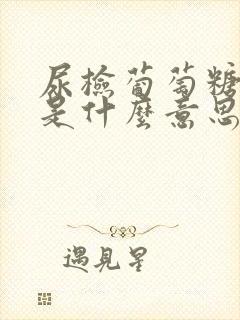 尿檢葡萄糖
是什麼意思
遇見星